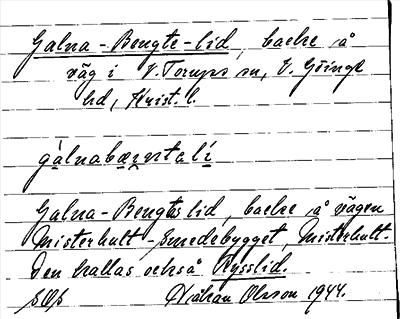 Galna-Bengts-lid, backe å
väg i V. Torups sn, V. Göinge
hd, Krist. l.
Galna-Bengts lid, backe å vägen
Misterhult-Smedebygget, Misterhult.
Den kallas också Rysslid.
Håkan Olsson 1944.